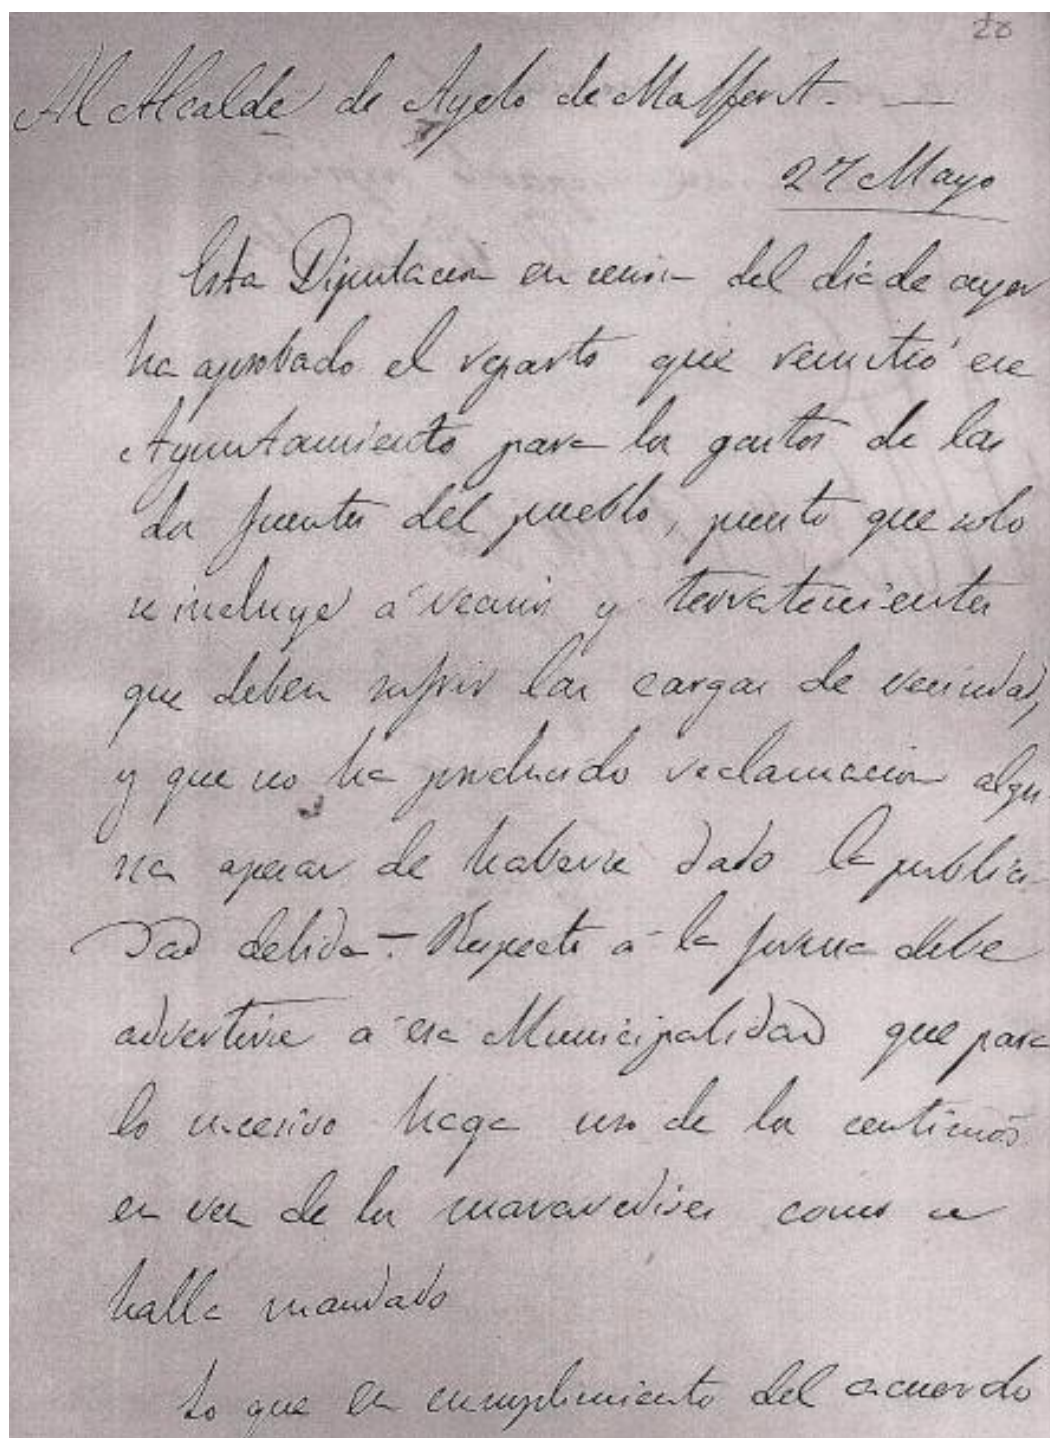 28
Al Alcalde de Ayelo de Malferit. —
27 Mayo
Esta Diputacion en cesion del dia de ayer
ha aprobado el reparto que remitió ese
Ayuntamiento para los gastos de las
dos fuentes del pueblo, puesto que solo
se incluye á vecinos y terratenientes
que deben sufrir las cargas de vecindad,
y que no ha producido reclamacion algu-
na apesar de haberse dado la publici-
dad debida.— Respecto á la forma debe
advertirse á esa Municipalidad que para
lo sucesivo haga uso de los centimos
en vez de los maravedises como se
halla mandado
Lo que en cumplimiento del acuerdo